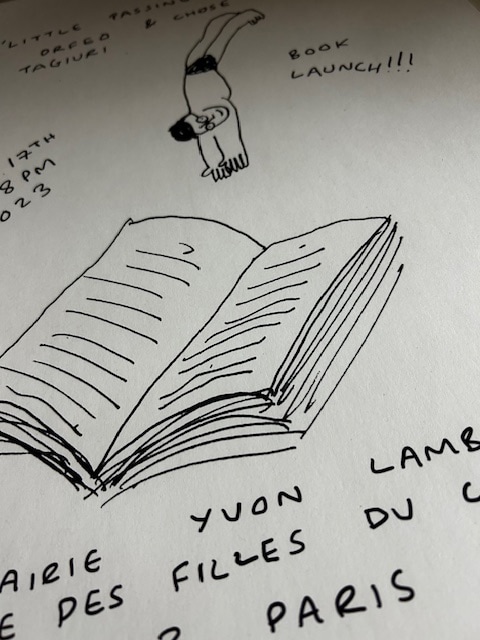 "LITTLE PASSING
ORFEO & CHOSE
TAGIURI
BOOK
LAUNCH!!!
17TH
8 PM
023
YVON LAMB
AIRIE
E DES FILLES DU C
PARIS